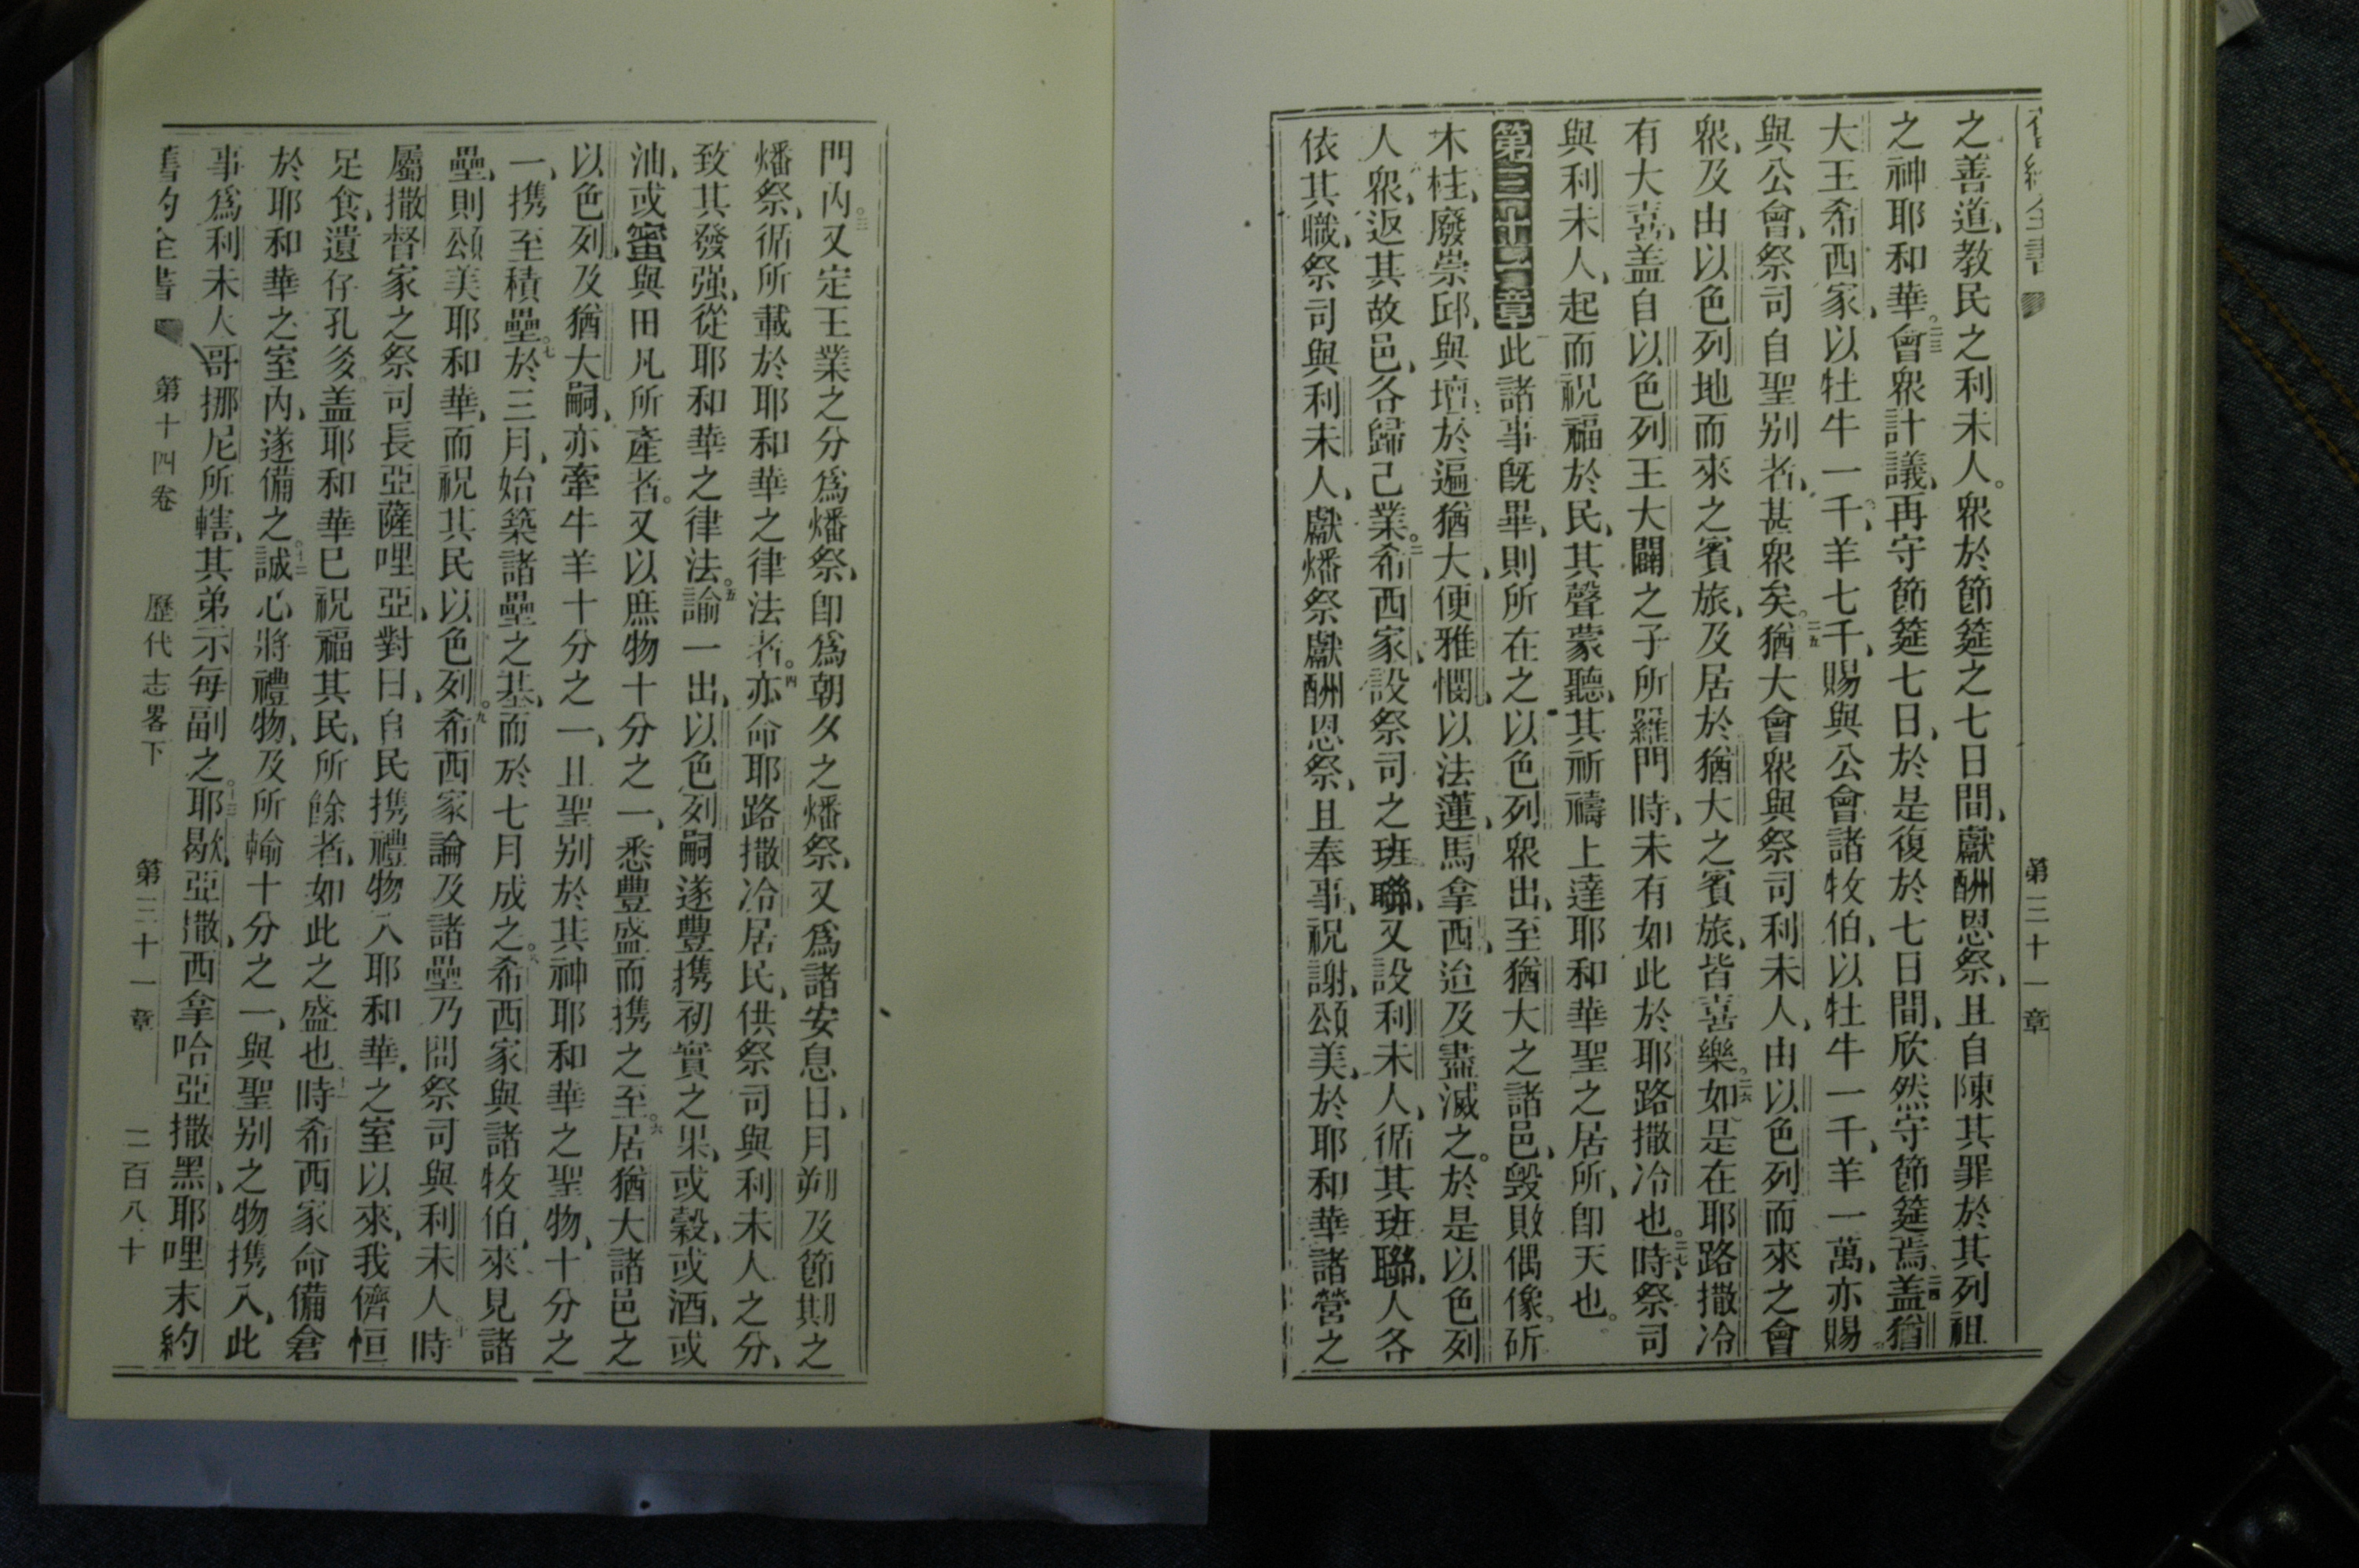 第三十一章
之善道、教民之利未人。衆於節筵之七日間、獻酬恩祭、且自陳其罪於其列祖
之神耶和華。二三會衆計議、再守節筵七日、於是復於七日間、欣然守節筵焉。二四盖猶
大王希西家、以牡牛一千、羊七千、賜與公會、諸牧伯、以牡牛一千、羊一萬、亦賜
與公會、祭司自聖別者、甚衆矣。二五猶大會衆與祭司利未人、由以色列而來之會
衆、及由以色列地而來之賓旅、及居於猶大之賓旅、皆喜樂。二六如是在耶路撒冷
有大喜、盖自以色列王大闢之子所羅門時、未有如此於耶路撒冷也。二七時、祭司
與利未人、起而祝福於民、其聲蒙聽、其祈禱上達耶和華聖之居所、卽天也。
第三十一章 此諸事旣畢、則所在之以色列衆出、至猶大之諸邑、毀敗偶像、斫
木柱、廢崇邱、與壇、於遍猶大、便雅憫、以法蓮、馬拿西、迨及盡滅之。於是以色列
人衆、返其故邑、各歸己業。二希西家、設祭司之班聯、又設利未人、循其班聯、人各
依其職、祭司與利未人、獻燔祭獻酬恩祭、且奉事、祝謝、頌美、於耶和華諸營之
門內。三又定王業之分爲燔祭、卽爲朝夕之燔祭、又爲諸安息日、月朔及節期之
燔祭、循所載於耶和華之律法者。四亦命耶路撒冷居民、供祭司與利未人之分、
致其發强、從耶和華之律法。五諭一出、以色列嗣遂豐攜初實之果、或穀、或酒、或
油、或蜜、與田凡所產者。又以庶物十分之一、悉豐盛而攜之至。六居猶大諸邑之
以色列、及猶大嗣、亦牽牛羊十分之一、且聖別於其神耶和華之聖物、十分之
一、攜至積壘。七於三月、始築諸壘之基、而於七月成之。八希西家與諸牧伯、來見諸
壘、則頌美耶和華、而祝其民以色列。九希西家論及諸壘乃問祭司與利未人。十時
屬撒督家之祭司長亞薩哩亞、對曰、自民攜禮物入耶和華之室以來、我儕恒
足食、遺仔孔多。盖耶和華已祝福其民、所餘者、如此之盛也。十一時希西家命備倉
於耶和華之室內、遂備之。十二誠心將禮物、及所輸十分之一、與聖別之物攜入、此
事爲利未人哥挪尼所轄、其弟示每副之。十三耶歇、亞撒、西拿哈、亞撒黑、耶哩末、約
舊約全書 第十四卷 歷代志畧下 第三十一章 二百八十